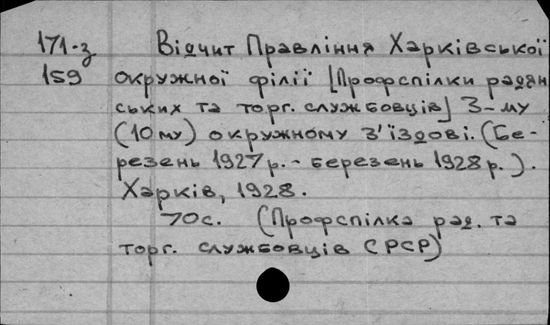 171-з Відчит Правління Харківської
159 окружної філії [Профспілки радян
ських та торг. службовців] 3-му
(10му) окружному з'їздові. (Бе-
резень 1927р. - березень 1928р.).
Харків, 1928.
70с. (Профспілка рад. та
торг. службовців СРСР)